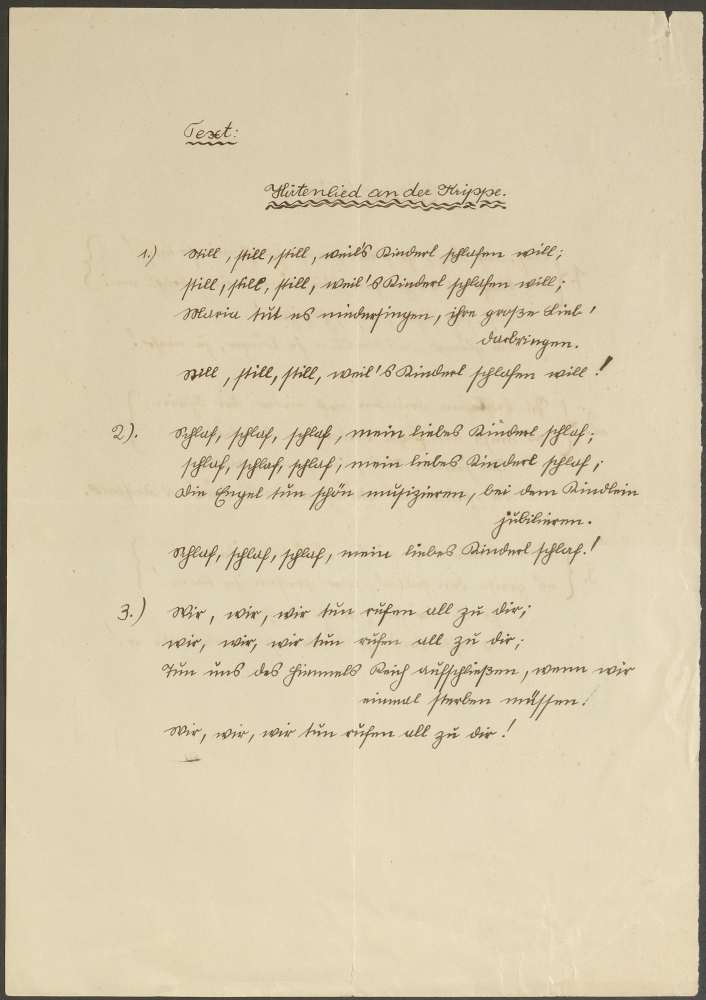 Text:
Hirtenlied an der Krippe.
1.) Still, still, still, weil's Kinderl schlafen will;
still, still, still, weil's Kinderl schlafen will;
Maria tut es niedersingen, ihre große Lieb'
darbringen.
Still, still, still, weil's Kinderl schlafen will!
2). Schlaf, schlaf, schlaf, mein liebes Kinderl schlaf;
schlaf, schlaf, schlaf, mein liebes Kinderl schlaf;
Die Engel tun schön musizieren, bei dem Kindlein
jubilieren.
Schlaf, schlaf, schlaf, mein liebes Kinderl schlaf!
3.) Wir, wir, wir tun rufen all zu dir;
wir, wir, wir tun rufen all zu dir;
Tun uns des Himmels Reich aufschließen, wenn wir
einmal sterben müssen!
Wir, wir, wir tun rufen all zu dir!